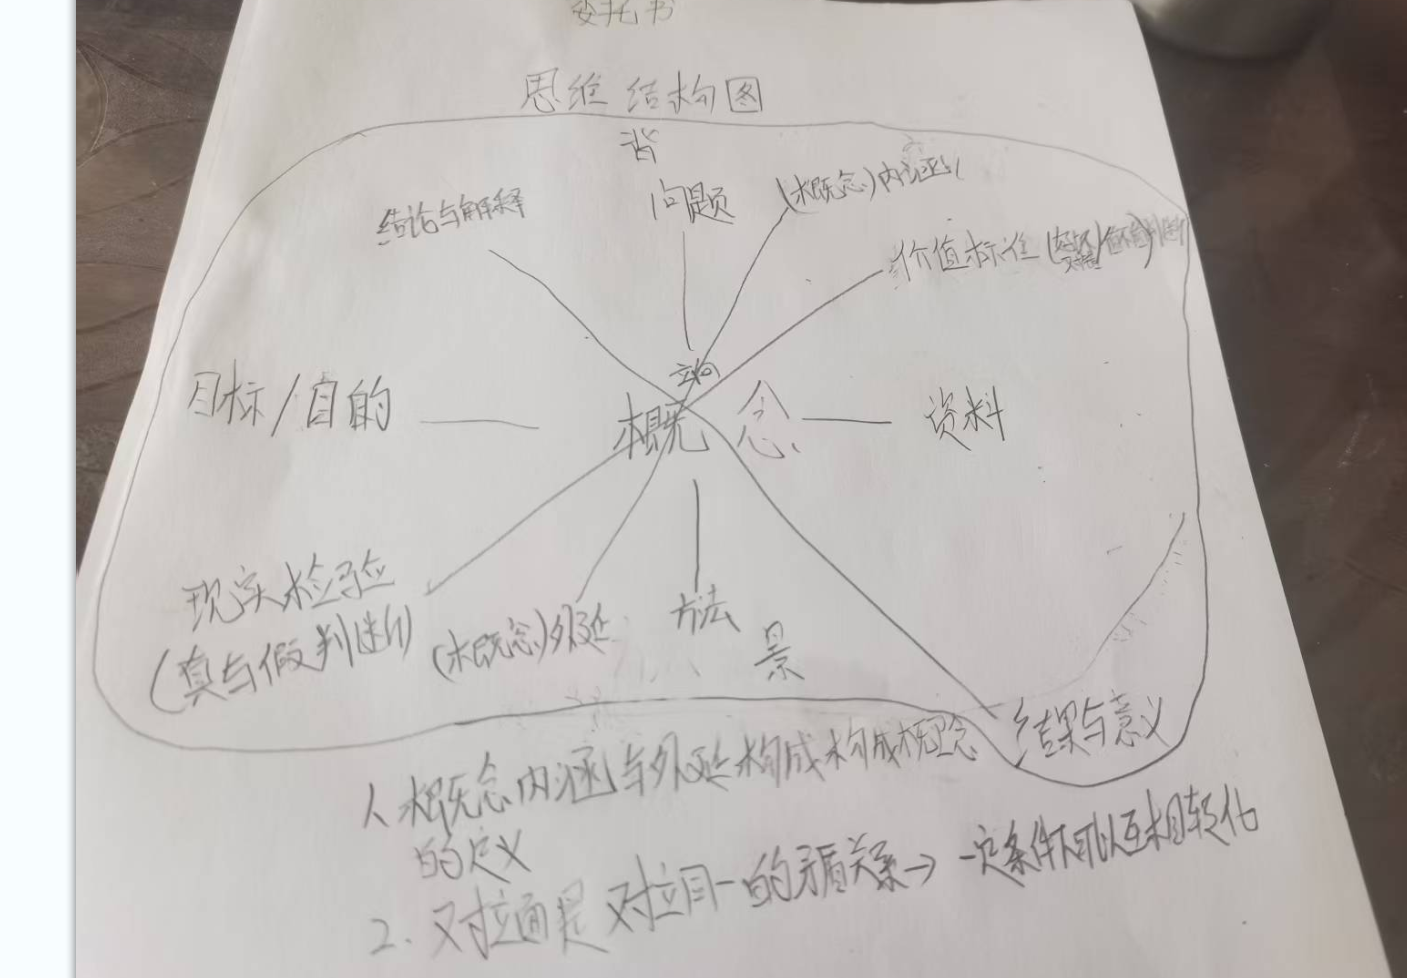 委托书
思维结构图
背
结论与解释
问题
(概念)内涵
价值标准
目标/目的
概念
资料
现实检验
(真与假判断)
(概念)外延
方法
景
结果与意义
1、概念内涵与外延构成构成概念
的定义
2.对立面是对立同一的矛盾关系→一定条件下可以互相转化